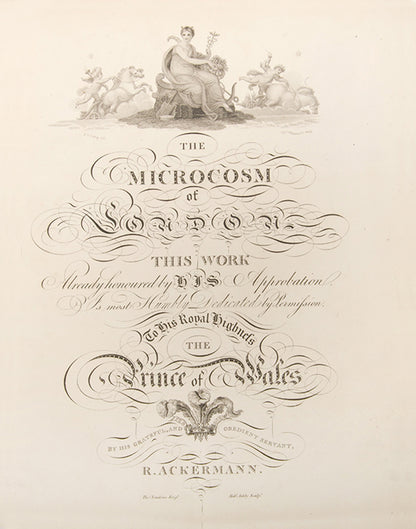 THE
MICROCOSM
of
LONDON.
THIS WORK
Already honoured by HIS Approbation.
Is most Humbly Dedicated by Permission.
To His Royal Highness
THE
Prince of Wales
BY HIS GRATEFUL, AND OBEDIENT SERVANT,
R. ACKERMANN.